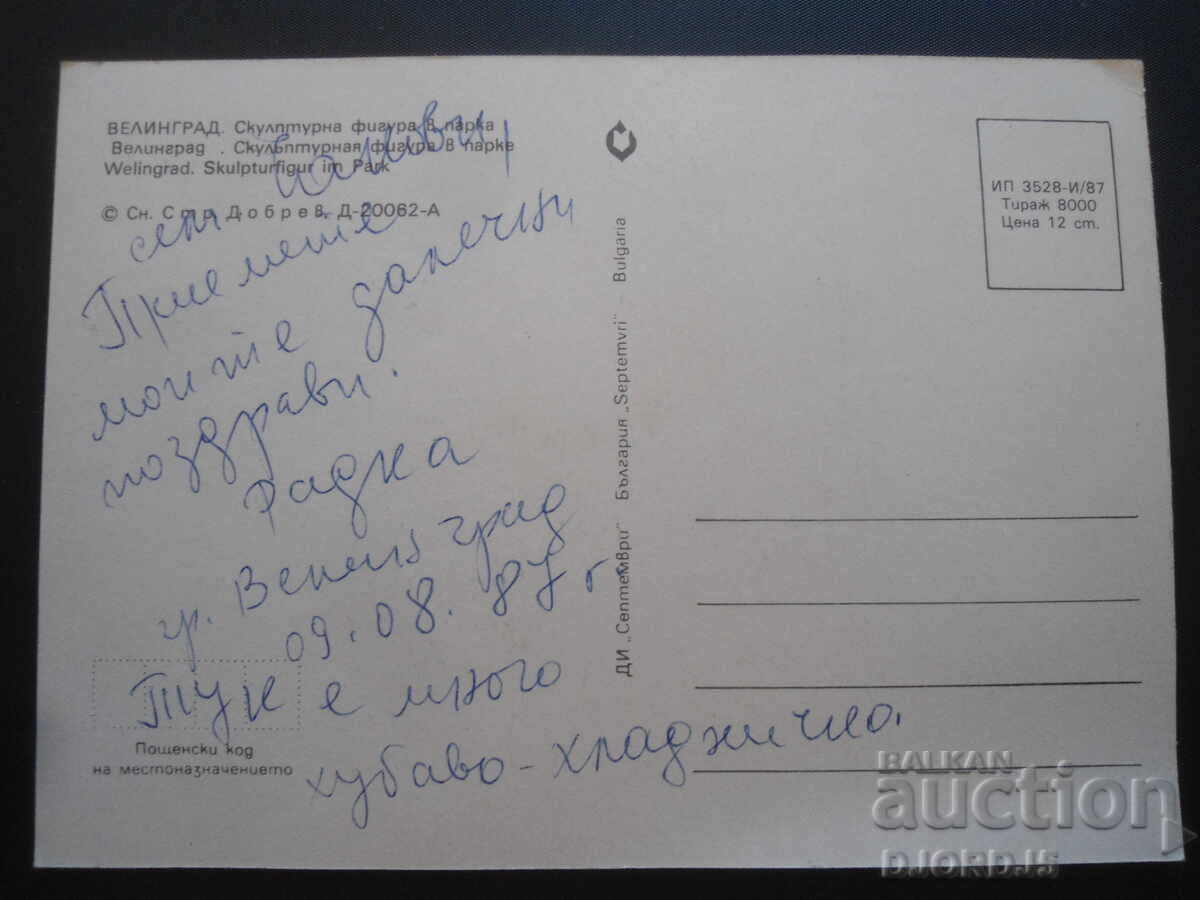 ВЕЛИНГРАД. Скулптурна фигура в парка
Велинград . Скульптурная фигура в парке
Welingrad. Skulpturfigur im Park
© Сн. Стр. Добрев, Д-20062-А
сем.
Приемете
моите далечни
поздрави.
Радка
гр. Велинград
09.08.87 г.
Тук е много
хубаво - хладничко.
Пощенски код
на местоназначението
ДИ „Септември" България „Septemvri" Bulgaria
ИП 3528-И/87
Тираж 8000
Цена 12 ст.
BALKAN
auction
DJORDJ5